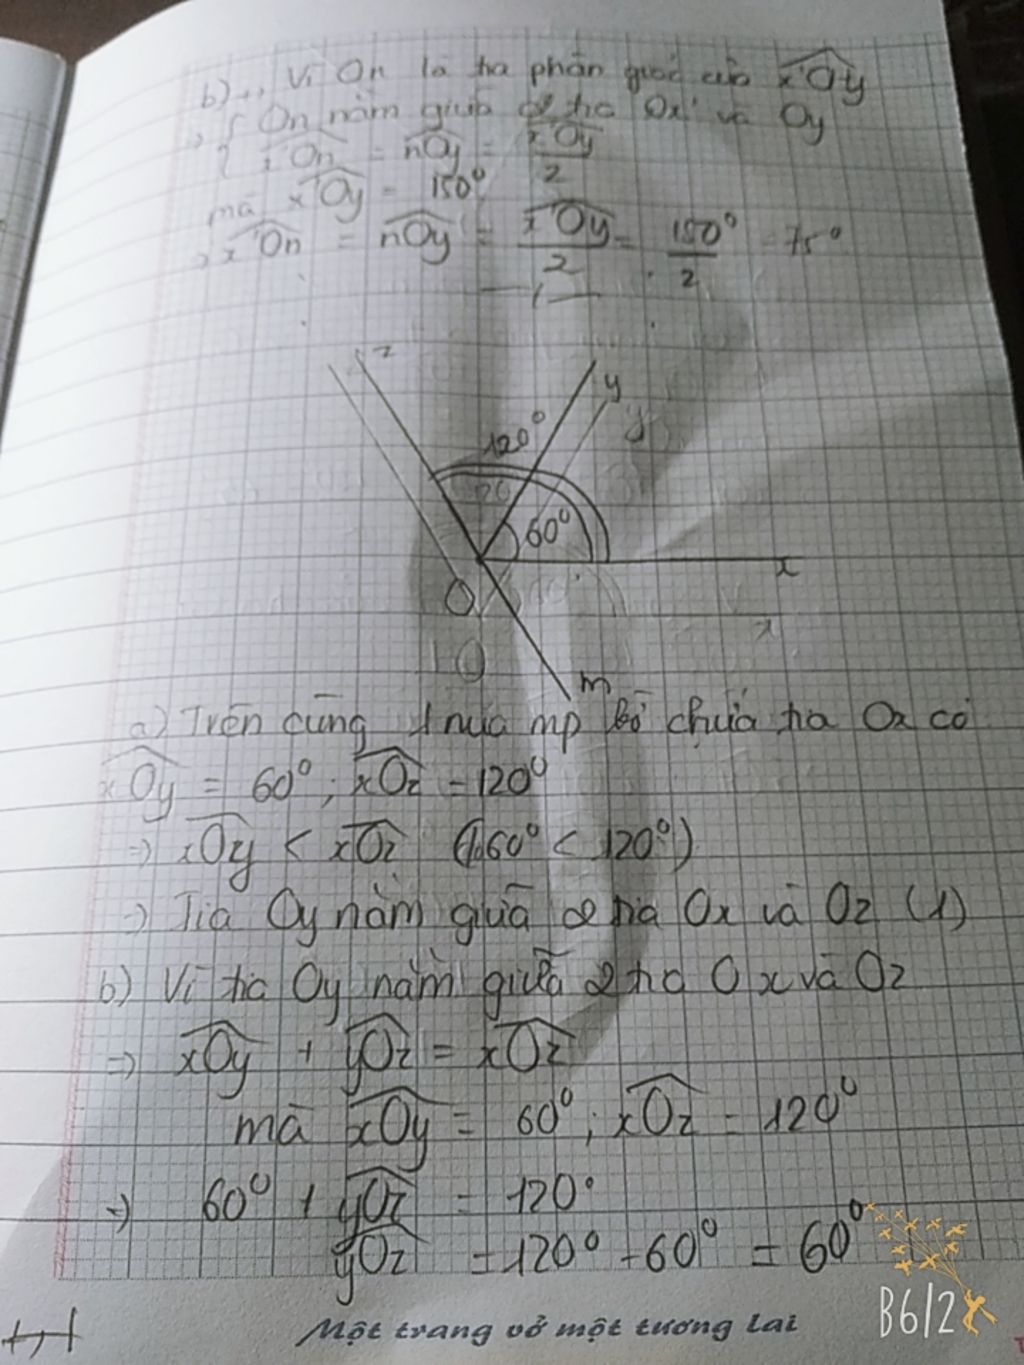 b) Vì On là tia phân giác của x'Oy
=> { On nằm giữa 2 tia Ox' và Oy
x'On = nOy = x'Oy / 2
mà x'Oy = 150°
=> x'On = nOy = x'Oy / 2 = 150° / 2 = 75°
z
y
y
120°
60°
x
O
x
O
m
a) Trên cùng 1 nửa mp bờ chứa tia Ox có
xOy = 60°; xOz = 120°
=> xOy < xOz (60° < 120°)
=> Tia Oy nằm giữa 2 tia Ox và Oz (1)
b) Vì tia Oy nằm giữa 2 tia Ox và Oz
=> xOy + yOz = xOz
mà xOy = 60°; xOz = 120°
=> 60° + yOz = 120°
yOz = 120° - 60° = 60°
Một trang vở một tương lai
B612